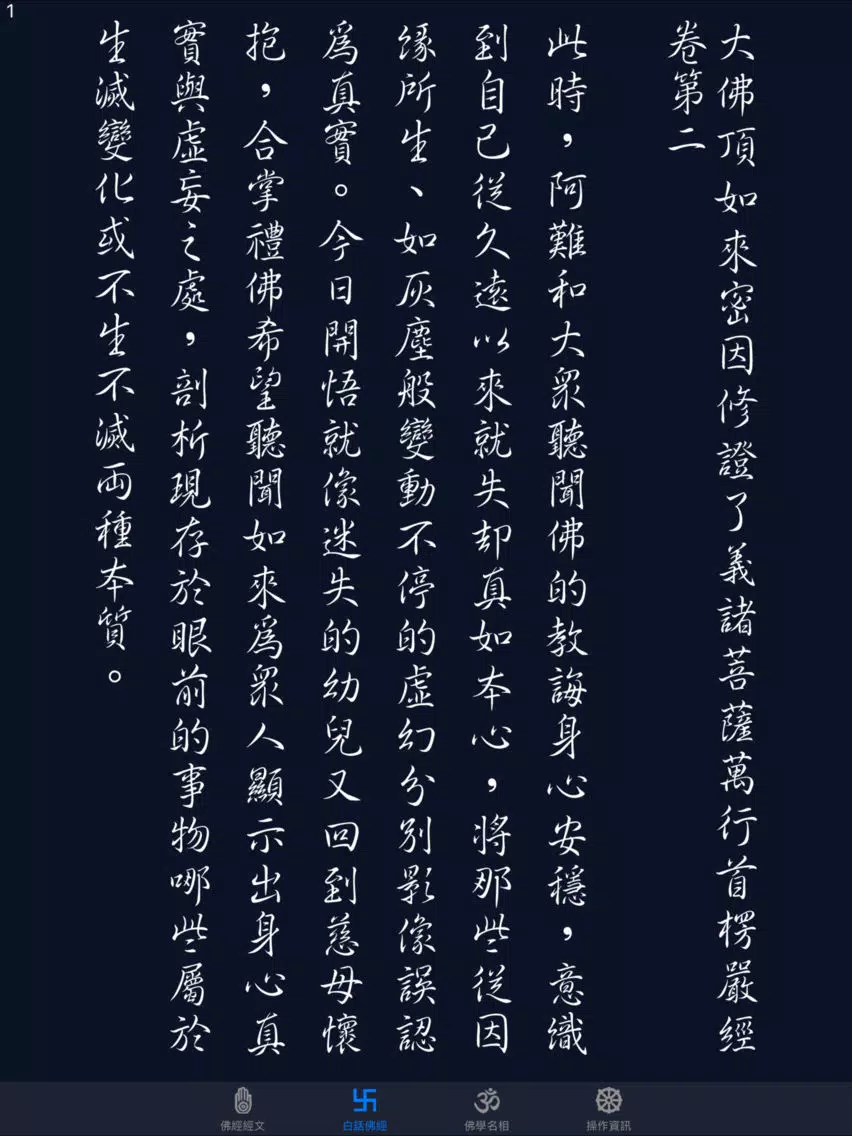 1
大佛頂如來密因修證了義諸菩薩萬行首楞嚴經
卷第二
此時，阿難和大眾聽聞佛的教誨身心安穩，意識
到自已從久遠以來就失却真如本心，將那些從因
緣所生、如灰塵般變動不停的虛幻分別影像誤認
爲真實。今日開悟就像迷失的幼兒又回到慈母懷
抱，合掌禮佛希望聽聞如來爲眾人顯示出身心真
實與虛妄之處，剖析現存於眼前的事物哪些屬於
生滅變化或不生不滅兩種本質。
佛經經文
白話佛經
佛學名相
操作資訊